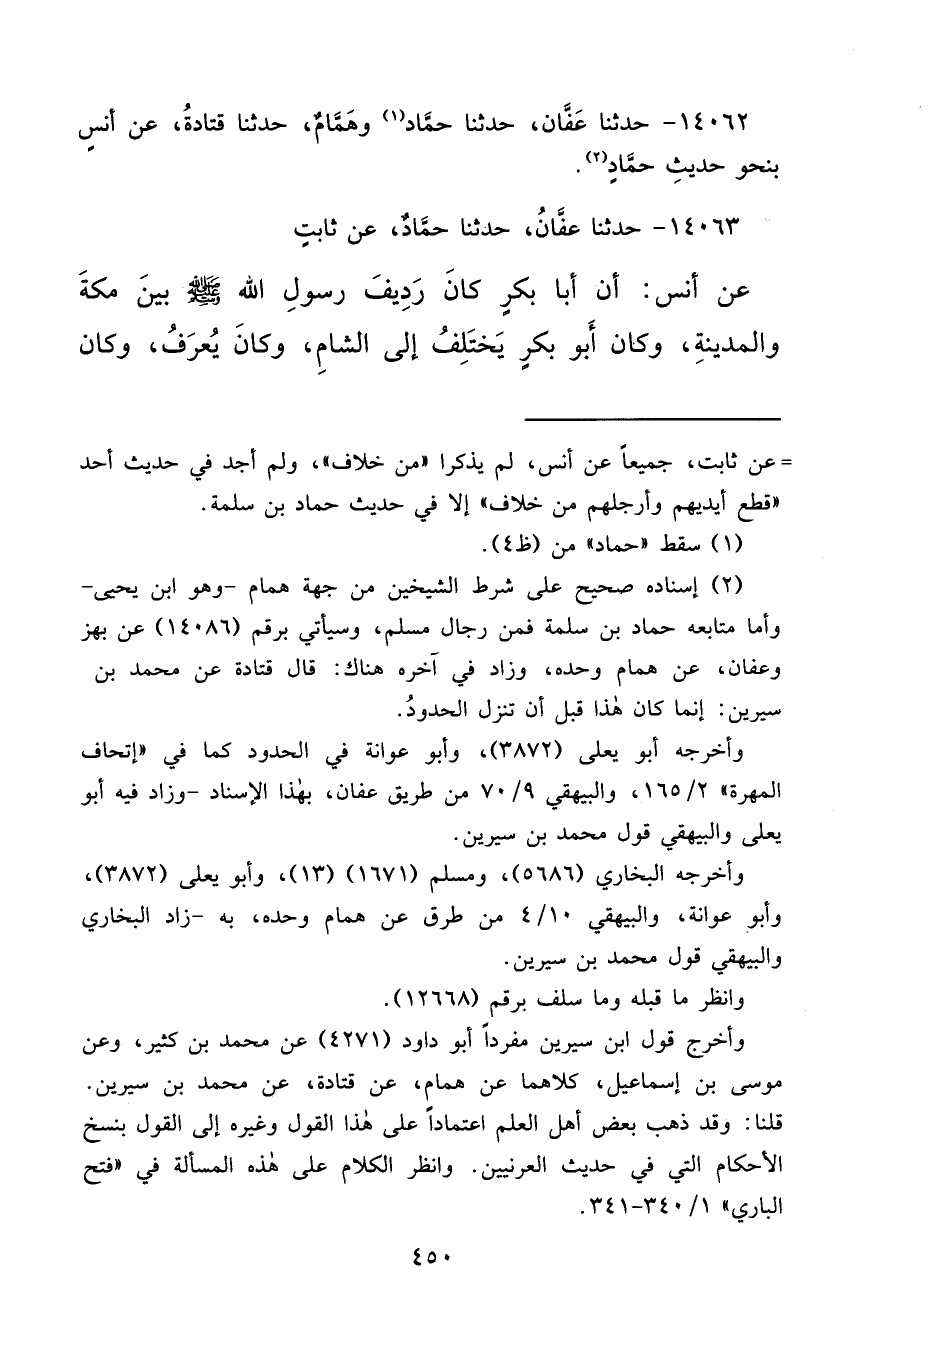 ١٤٠٦٢- حدثنا عَفَّان، حدثنا حمَّاد(١) وهَمَّامٌ، حدثنا قتادةُ، عن أنسٍ
بنحو حديثِ حمَّادٍ(٢).
١٤٠٦٣- حدثنا عفَّانُ، حدثنا حمَّادٌ، عن ثابتٍ
عن أنس: أن أبا بكرٍ كانَ رَدِيفَ رسولِ الله ﷺ بينَ مكةَ
والمدينةِ، وكان أَبو بكرٍ يَختَلِفُ إلى الشامِ، وكانَ يُعرَفُ، وكان
= عن ثابت، جميعاً عن أنس، لم يذكرا «من خلاف»، ولم أجد في حديث أحد
«قطع أيديهم وأرجلهم من خلاف» إلا في حديث حماد بن سلمة.
(١) سقط «حماد» من (ظ٤).
(٢) إسناده صحيح على شرط الشيخين من جهة همام -وهو ابن يحيى-
وأما متابعه حماد بن سلمة فمن رجال مسلم، وسيأتي برقم (١٤٠٨٦) عن بهز
وعفان، عن همام وحده، وزاد في آخره هناك: قال قتادة عن محمد بن
سيرين: إنما كان هٰذا قبل أن تنزل الحدودُ.
وأخرجه أبو يعلى (٣٨٧٢)، وأبو عوانة في الحدود كما في «إتحاف
المهرة» ١٦٥/٢، والبيهقي ٧٠/٩ من طريق عفان، بهٰذا الإسناد -وزاد فيه أبو
يعلى والبيهقي قول محمد بن سيرين.
وأخرجه البخاري (٥٦٨٦)، ومسلم (١٦٧١) (١٣)، وأبو يعلى (٣٨٧٢)،
وأبو عوانة، والبيهقي ٤/١٠ من طرق عن همام وحده، به -زاد البخاري
والبيهقي قول محمد بن سيرين.
وانظر ما قبله وما سلف برقم (١٢٦٦٨).
وأخرج قول ابن سيرين مفرداً أبو داود (٤٢٧١) عن محمد بن كثير، وعن
موسى بن إسماعيل، كلاهما عن همام، عن قتادة، عن محمد بن سيرين.
قلنا: وقد ذهب بعض أهل العلم اعتماداً على هٰذا القول وغيره إلى القول بنسخ
الأحكام التي في حديث العرنيين. وانظر الكلام على هٰذه المسألة في «فتح
الباري» ٣٤٠/١-٣٤١.
٤٥٠